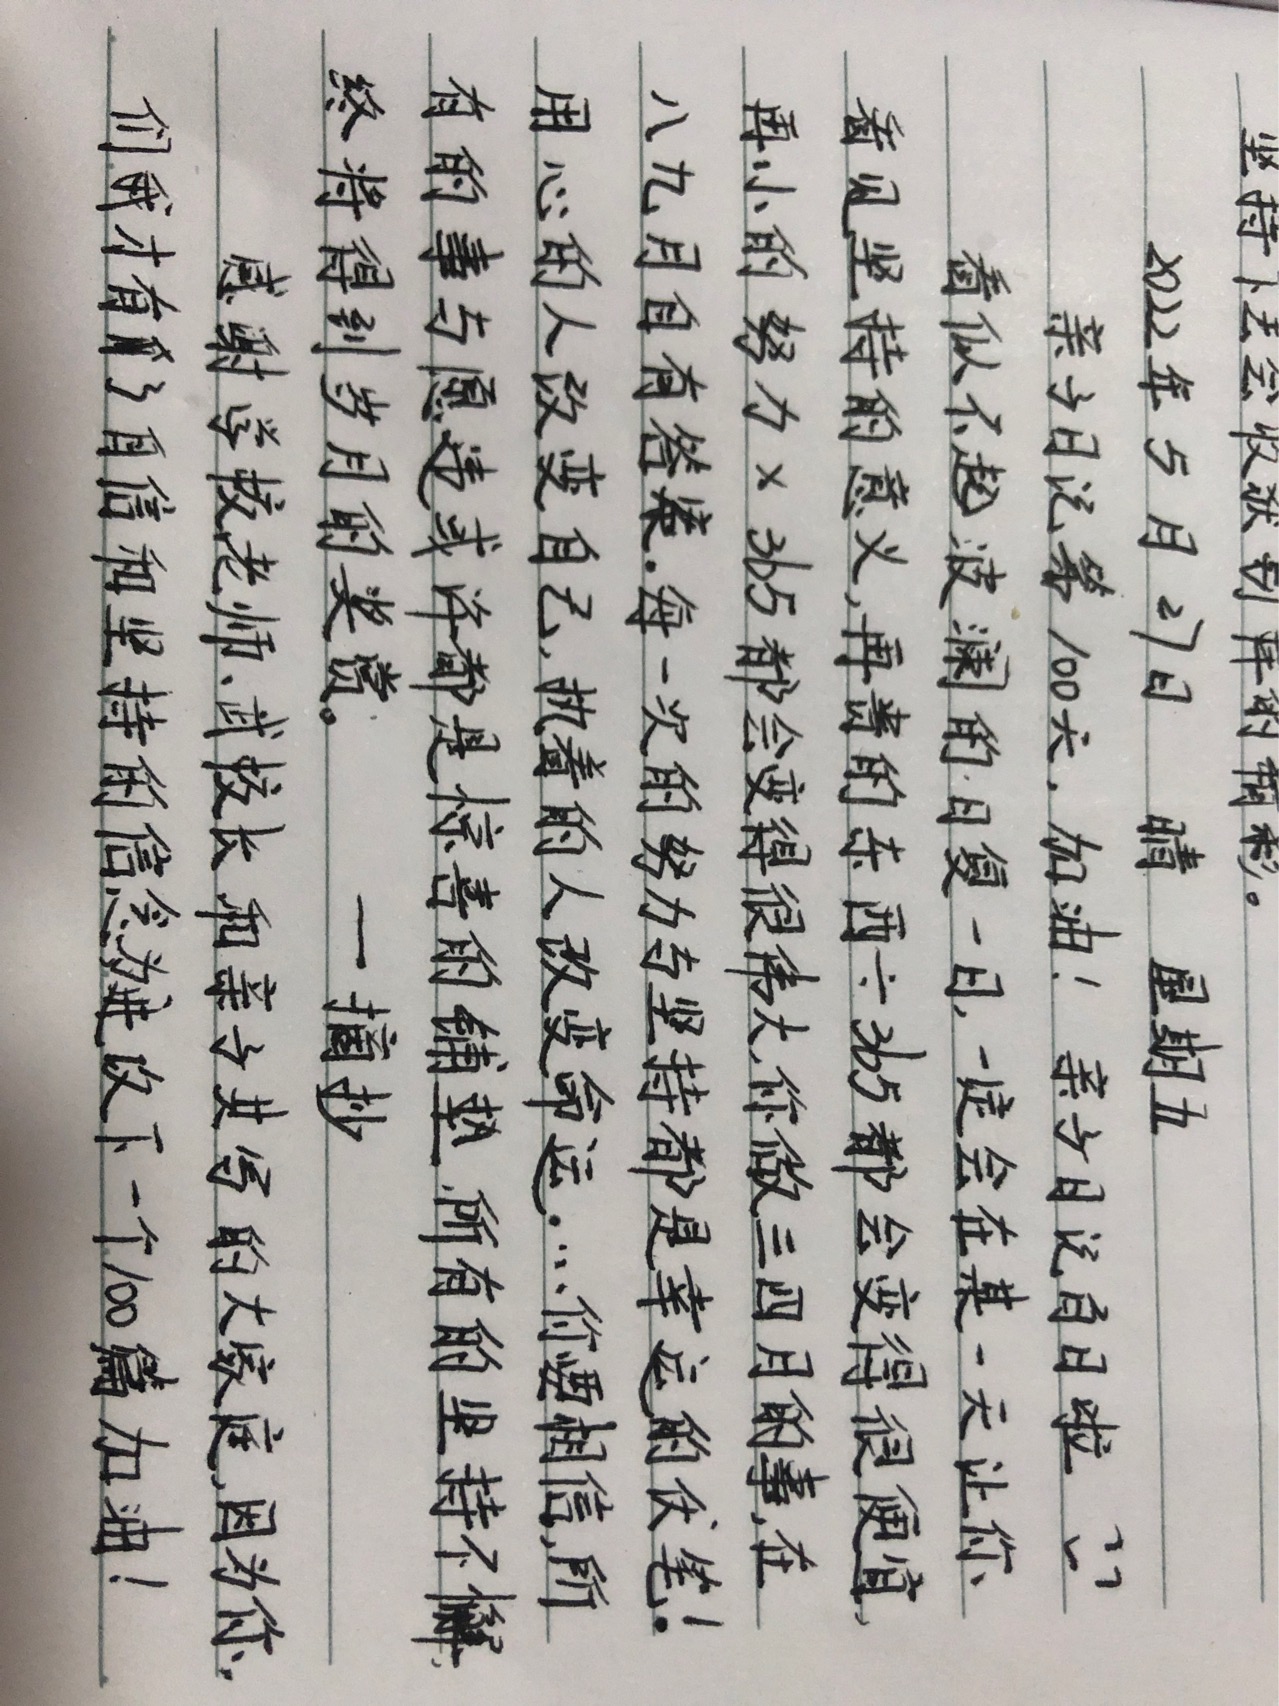 坚持下去会收获别样的精彩。
2022年5月27日 晴 星期五
亲子日记第100天,加油! 亲子日记百日啦
看似不起波澜的日复一日,一定会在某一天让你
看见坚持的意义,再贵的东西÷365都会变得很便宜,
再小的努力×365都会变得很伟大,你做三四月的事,在
八九月自有答案.每一次的努力与坚持都是幸运的伏笔!
用心的人改变自己,执着的人改变命运.…你要相信,所
有的事与愿违或许都是惊喜的铺垫,所有的坚持不懈,
终将得到岁月的奖赏。 一摘抄
感谢学校老师、武校长和亲子共写的大家庭,因为你
们我才有了自信和坚持的信念为进以下一个100篇加油!